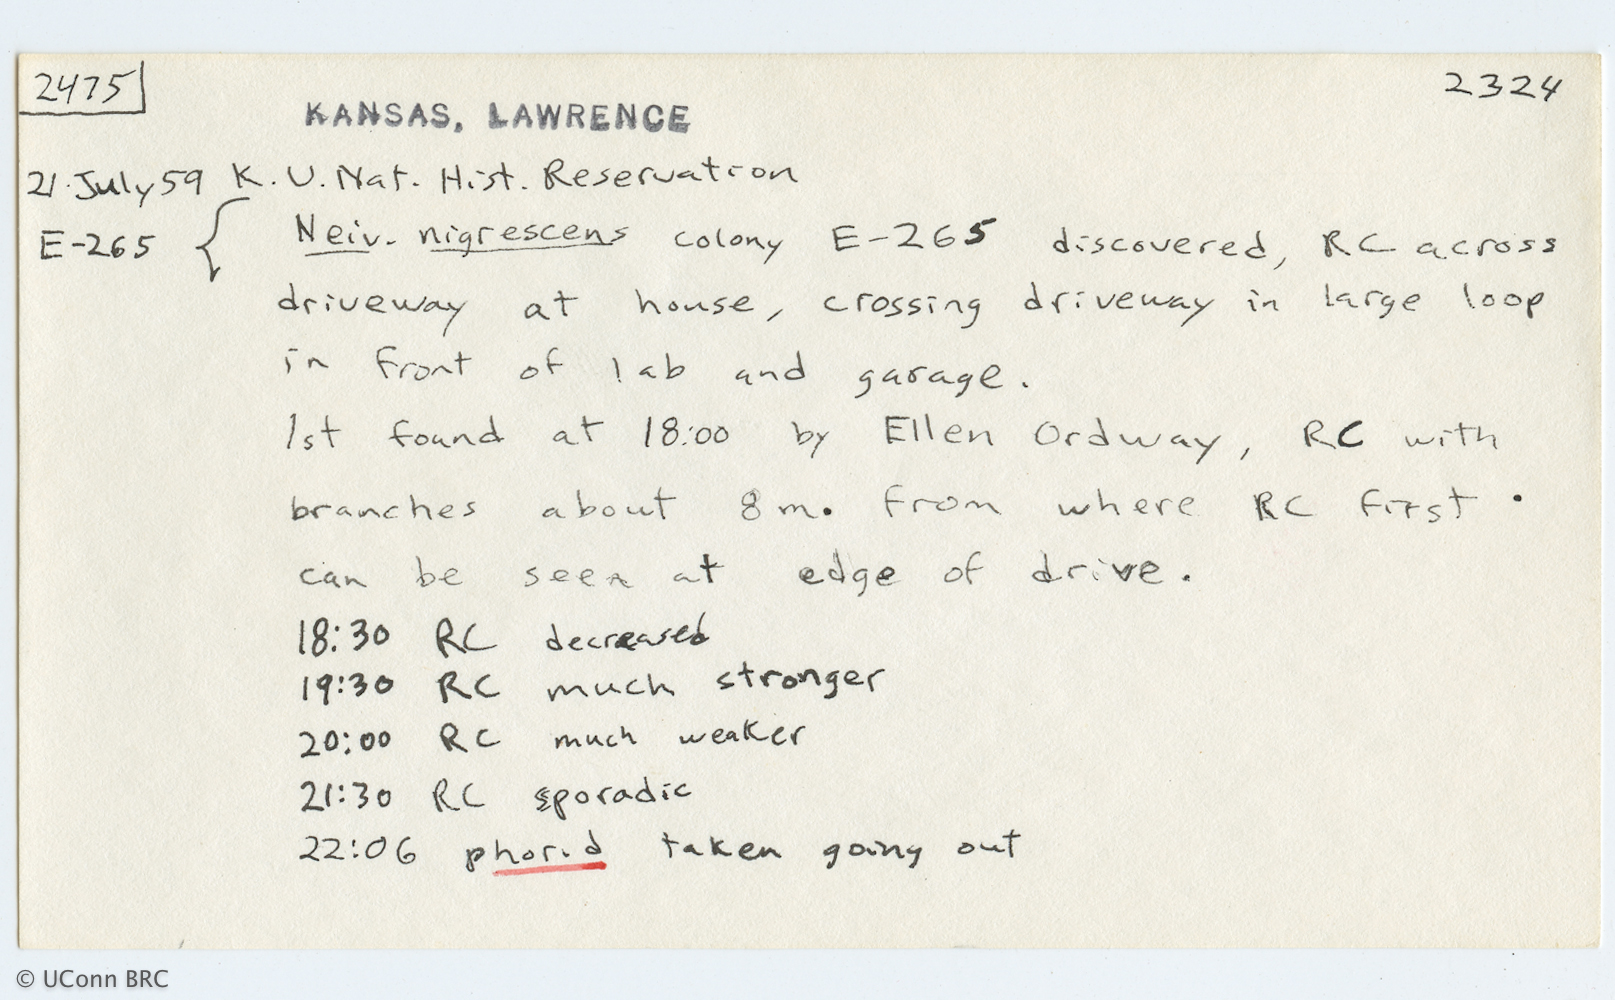 2475
2324
KANSAS, LAWRENCE
21 July 59 K. U. Nat. Hist. Reservation
E-265 { Neiv. nigrescens colony E-265 discovered, RC across
driveway at house, crossing driveway in large loop
in front of lab and garage.
1st found at 18:00 by Ellen Ordway, RC with
branches about 8 m. from where RC first
can be seen at edge of drive.
18:30 RC decreased
19:30 RC much stronger
20:00 RC much weaker
21:30 RC sporadic
22:06 phorid taken going out
© UConn BRC